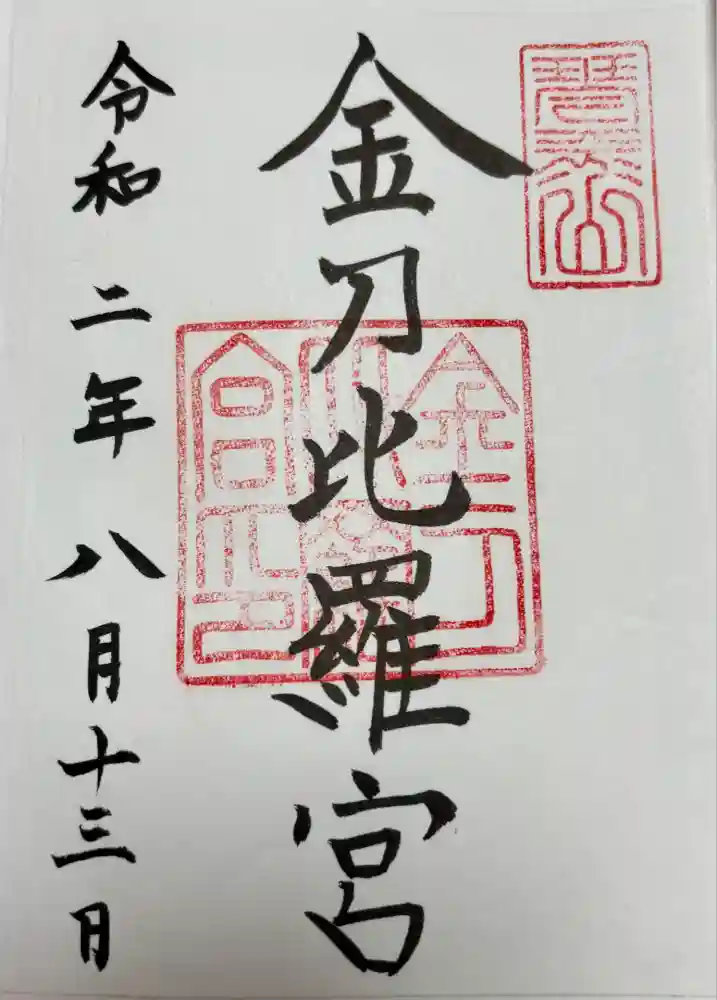 琴平山
金刀比羅宮
金刀比羅宮印
令和二年八月十三日